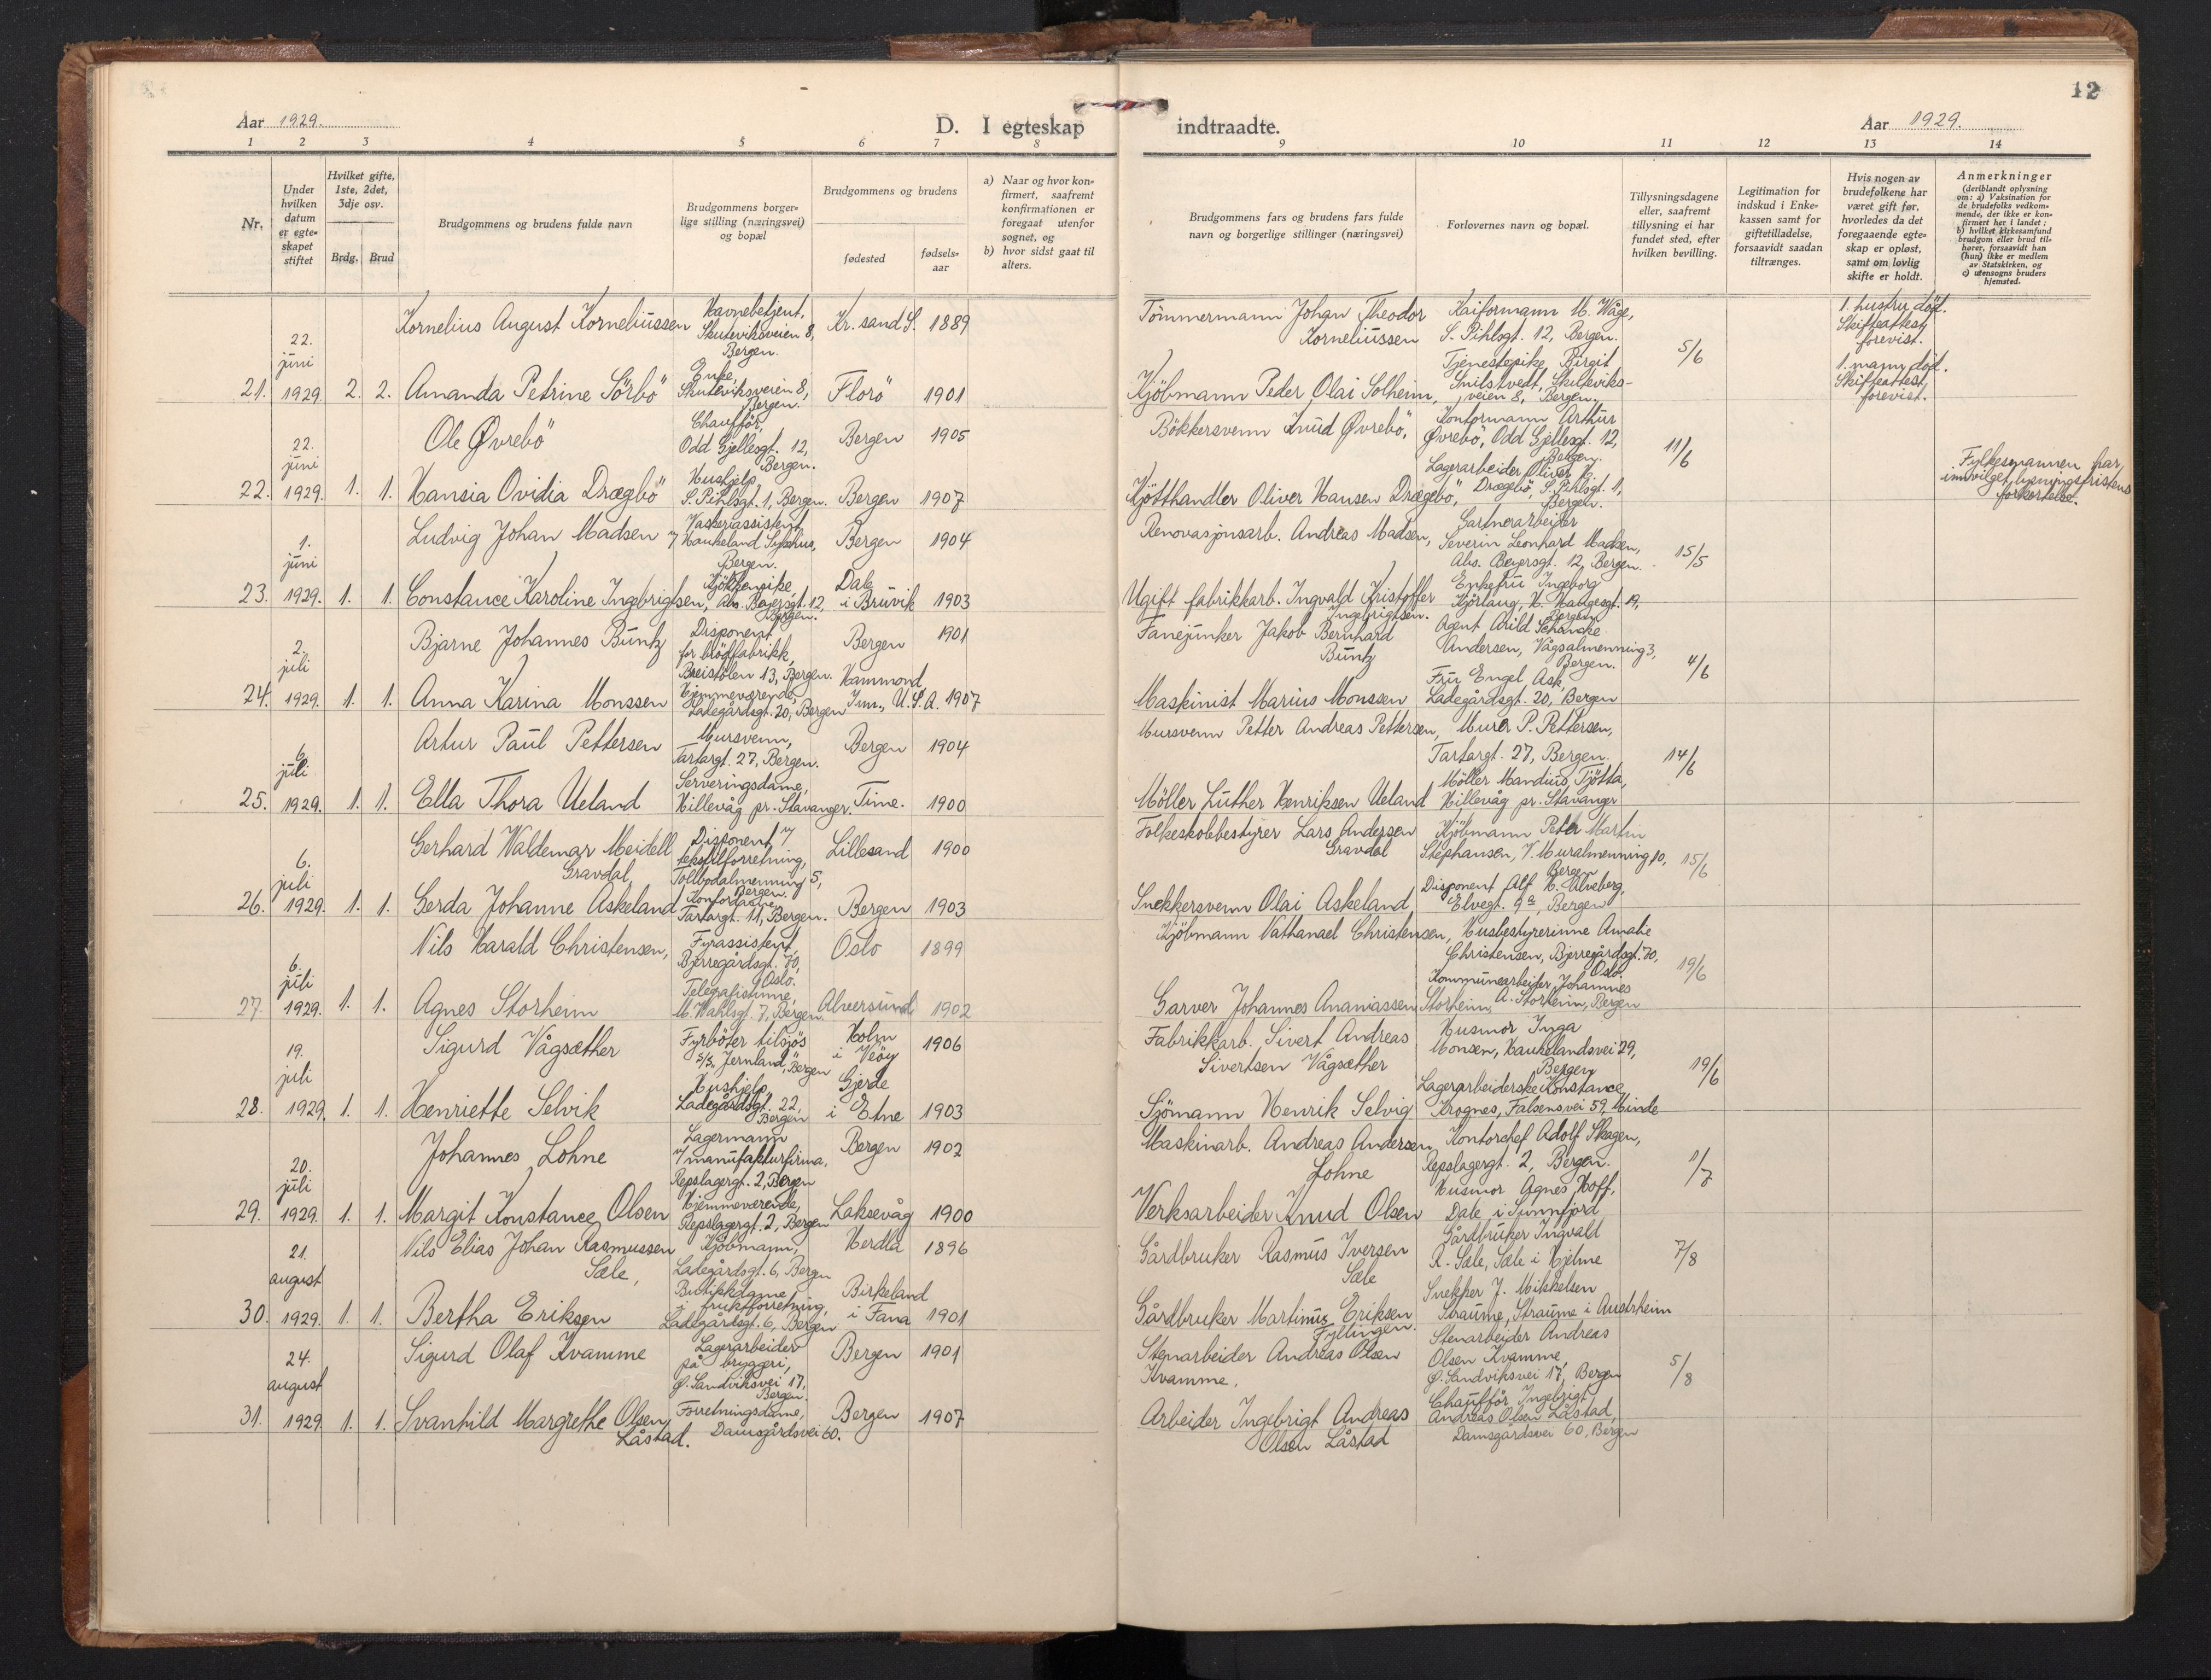 12
Aar 1929.
D. I egteskap indtraadte.
Aar 1929.
1 2 3 4 5 6 7 8 9 10 11 12 13 14
Nr.
Under hvilken datum er egteskapet stiftet
Hvilket gifte, 1ste, 2det, 3dje osv.
Brdg. Brud
Brudgommens og brudens fulde navn
Brudgommens borgerlige stilling (næringsvei) og bopæl
Brudgommens og brudens
fødested
fødselsaar
a) Naar og hvor konfirmert, saafremt konfirmationen er foregaat utenfor sognet, og
b) hvor sidst gaat til alters.
Brudgommens fars og brudens fars fulde navn og borgerlige stillinger (næringsvei)
Forlovernes navn og bopæl.
Tillysningsdagene eller, saafremt tillysning ei har fundet sted, efter hvilken bevilling.
Legitimation for indskud i Enkekassen samt for giftetilladelse, forsaavidt saadan tiltrænges.
Hvis nogen av brudefolkene har været gift før, hvorledes da det foregaaende egteskap er opløst, samt om lovlig skifte er holdt.
Anmerkninger
(deriblandt oplysning om: a) Vaksination for de brudefolks vedkommende, der ikke er konfirmert her i landet; b) hvilket kirkesamfund brudgom eller brud tilhører, forsaavidt han (hun) ikke er medlem av Statskirken, og c) utensogns bruders hjemsted.
21. 22. juni 1929 2. 2.
Kornelius August Korneliussen
Havnebetjent, Skuteviksveien 8, Bergen.
Kr. sand S. 1889
Tömmermann Johan Theodor Korneliussen
Kaiformann M. Wåge, S. Pihlsgt. 12, Bergen.
5/6
1. hustru död. Skifteattest forevist.
Amanda Petrine Sörbö
Enke, Skuteviksveien 8, Bergen.
Florö 1901
Kjöbmann Peder Olai Solheim,
Tjenestepike Birgit Smilstvedt, Skuteviksveien 8, Bergen.
1. mann död. Skifteattest forevist.
22. 22. juni 1929. 1. 1.
Ole Øvrebö
Chaufför, Odd Gjellesgt. 12, Bergen.
Bergen 1905
Bökkersvenn Knud Øvrebö,
Kontormann Arthur Øvrebö, Odd Gjellesgt. 12, Bergen.
11/6
Hansia Ovidia Drægebö
Hushjelp, S. Pihlsgt. 1, Bergen.
Bergen 1907
Kjötthandler Oliver Hansen Drægebö,
Lagerarbeider Oliver H. Drægebö, S. Pihlsgt. 11, Bergen.
Fylkesmannen har innvilget lysningsfristens forkortelse.
23. 1. juni 1929. 1. 1.
Ludvig Johan Madsen
Vaskeriassistent v/ Haukeland Sykehus, Bergen.
Bergen 1904
Renovasjonsarb. Andreas Madsen,
Gartnerarbeider Severin Leonhard Madsen, Abs. Beyersgt. 12, Bergen.
15/5
Constance Karoline Ingebrigtsen,
Kjökkenpike, Abs. Beyersgt. 12, Bergen.
Dale i Bruvik 1903
Ugift fabrikkarb. Ingvald Kristoffer Ingebrigtsen.
Enkefru Ingeborg Kjörlaug, H. Haugesgt. 19, Bergen
24. 2. juli 1929. 1. 1.
Bjarne Johannes Buntz
Disponent for brödfabrikk, Breistölen 13, Bergen.
Bergen 1901
Fanejunker Jakob Bernhard Buntz
Agent Arild Schancke Andersen, Vågsalmenning 3, Bergen.
4/6
Anna Karina Monssen
Hjemmeværende, Ladegårdsgt. 20, Bergen
Hammond, U.S.A. 1907
Maskinist Marius Monssen
Fru Engel Ask, Ladegårdsgt. 20, Bergen
25. 6. juli 1929. 1. 1.
Artur Paul Pettersen
Mursvenn, Tartargt. 27, Bergen.
Bergen 1904
Mursvenn Petter Andreas Pettersen,
Murer P. Pettersen, Tartargt. 27, Bergen.
14/6
Ella Thora Ueland
Serveringsdame, Hillevåg pr. Stavanger.
Time. 1900
Möller Luther Henriksen Ueland
Möller Mandius Tjötta, Hillevåg pr. Stavanger
26. 6. juli 1929. 1. 1.
Gerhard Waldemar Meidell Gravdal,
Disponent v/ tekstilforretning, Tollbodalmenning 5, Bergen.
Lillesand 1900
Folkeskolebestyrer Lars Andersen Gravdal
Kjöbmann Peter Martin Stephansen, V. Muralmenning 10, Bergen
15/6
Gerda Johanne Askeland
Kontordame, Tartargt. 11, Bergen.
Bergen 1903
Snekkersvenn Olai Askeland
Disponent Alf H. Alveberg, Elvegt. 9a, Bergen
27. 6. juli 1929. 1. 1.
Nils Harald Christensen,
Fyrassistent, Bjerregårdsgt. 70, Oslo.
Oslo 1899
Kjöbmann Nathanael Christensen,
Husbestyrerinne Amalie Christensen, Bjerregårdsgt. 70, Oslo.
19/6
Agnes Storheim
Telegrafistinne, M. Wahlsgt. 7, Bergen.
Alversund 1902
Garver Johannes Ananiassen Storheim,
Kommunearbeider Johannes A. Storheim, Bergen
28. 19. juli 1929. 1. 1.
Sigurd Vågsæther
Fyrböter tilsjös s/s "Jernland", Bergen
Holm i Veöy 1906
Fabrikkarb. Sivert Andreas Sivertsen Vågsæther
Husmor Inga Monsen, Haukelandsvei 29, Bergen
19/6
Henriette Selvik
Hushjelp, Ladegårdsgt. 22, Bergen
Gjerde i Etne 1903
Sjömann Henrik Selvig
Lagerarbeiderske Konstance Krognes, Falsensvei 59, Minde
29. 20. juli 1929. 1. 1.
Johannes Lohne
Lagermann v/ manufakturfirma, Repslagergt. 2, Bergen
Bergen 1902
Maskinarb. Andreas Andersen Lohne
Kontorchef Adolf Skagen, Repslagergt. 2, Bergen.
1/7
Margit Konstance Olsen
Hjemmeværende, Repslagergt. 2, Bergen
Laksevåg 1900
Verksarbeider Knud Olsen
Husmor Agnes Hoff, Dale i Sunnfjord
30. 21. august 1929. 1. 1.
Nils Elias Johan Rasmussen Sæle,
Kjöbmann, Ladegårdsgt. 6, Bergen
Herdla 1896
Gårdbruker Rasmus Iversen Sæle
Gårdbruker Ingvald R. Sæle, Sæle i Hjelme
7/8
Bertha Eriksen
Butikkdame i fruktforretning, Ladegårdsgt. 6, Bergen
Birkeland i Fana 1901
Gårdbruker Martinus Eriksen Fyllingen.
Snekker J. Mikkelsen Straume, Straume i Austrheim
31. 24. august 1929 1. 1.
Sigurd Olaf Kvamme
Lagerarbeider på bryggeri, Ø. Sandviksvei 17, Bergen.
Bergen 1901
Stenarbeider Andreas Olsen Kvamme,
Stenarbeider Andreas Olsen Kvamme, Ø. Sandviksvei 17, Bergen
5/8
Svanhild Margrethe Olsen Låstad.
Forretningsdame, Damsgårdsvei 60.
Bergen 1907
Arbeider Ingebrigt Andreas Olsen Låstad
Chaufför Ingebrigt Andreas Olsen Låstad, Damsgårdsvei 60, Bergen